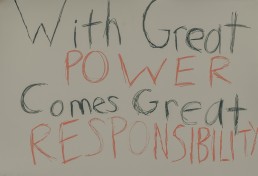 With Great
POWER
Comes Great
RESPONSIBILITY